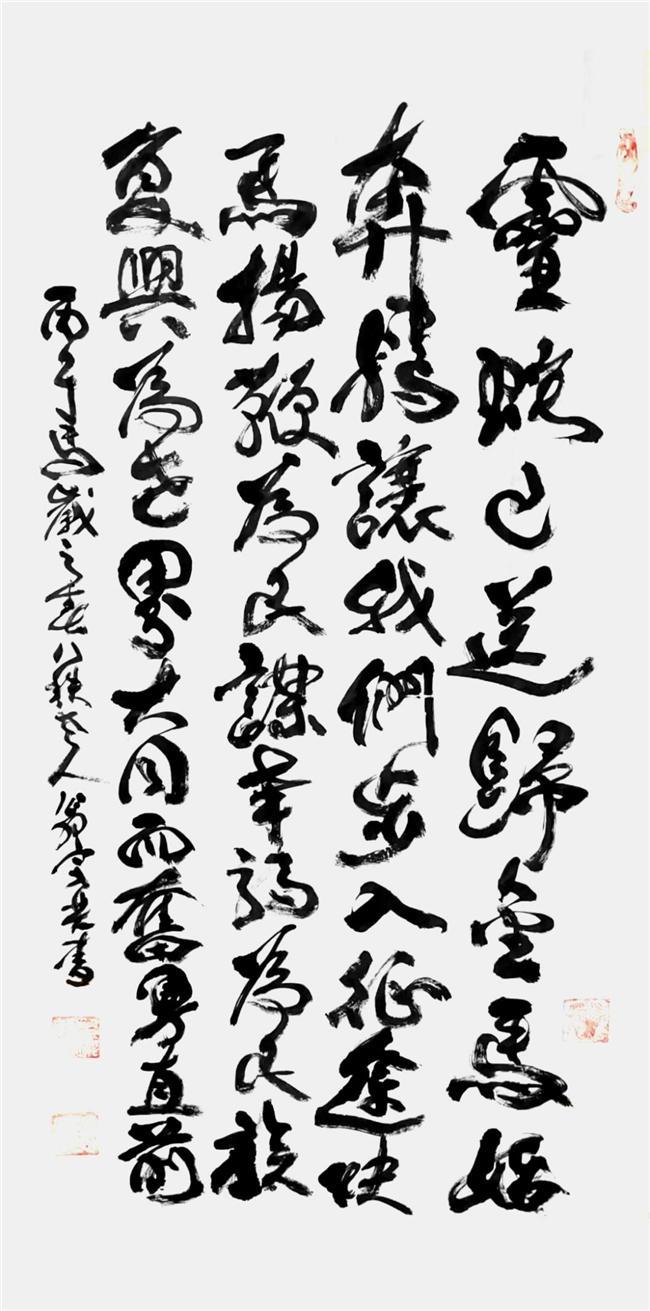 靈蛇已送歸金馬始
奔騰讓我們步入征途快
馬揚鞭為民謀幸福為民族
复興為世界大同而奮勇直前
丙午馬歲之春八秩老人翁書